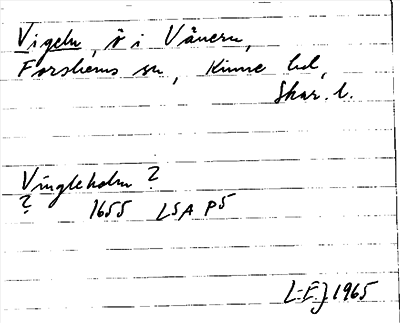 Vigeln, ö i Vänern,
Forshems sn, Kinne hd,
Skar. l.
Vingleholm ?
? 1655 LSA P5
L-E.J 1965